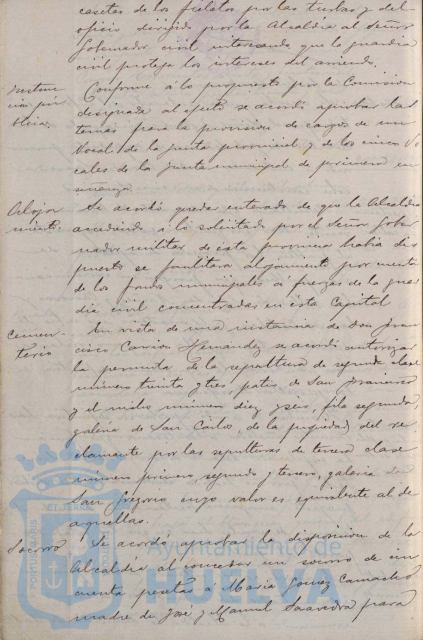 casetas de los fielatos por las turbas y del
oficio dirigido por la Alcaldía al Señor
Gobernador civil interesando que la guardia
civil proteja los intereses del arriendo.
Instruc
ción pú
blica.
Conforme á lo propuesto por la Comisión
designada al efecto se acordó aprobar las
ternas para la provisión de cargos de un
Vocal de la Junta provincial y de los cinco Vo
cales de la Junta municipal de primera en
señanza.
Aloja
miento.
Se acordó quedar enterado de que la Alcaldía
accediendo á lo solicitado por el Señor Gober
nador militar de esta provincia había dis
puesto se facilitara alojamiento por cuenta
de los fondos municipales á fuerzas de la guar
dia civil concentradas en esta Capital
Cemen-
terio
En vista de una instancia de Don Fran
cisco Carrión Hernandez se acordó autorizar
la permuta de la sepultura de segunda clase
número treinta y tres, patio de San Francisco
y el nicho número diez y seis, fila segunda,
galería de San Carlos, de la propiedad del re
clamante por las sepulturas de tercera clase
número primero, segundo y tercero, galería de
San Gregorio cuyo valor es equivalente al de
aquellas.
Socorro
Se acordó aprobar la disposición de la
Alcaldía al conceder un socorro de cin
cuenta pesetas á María Gomez Camacho
madre de José y Manuel Saavedra para
Ayuntamiento de
HUELVA